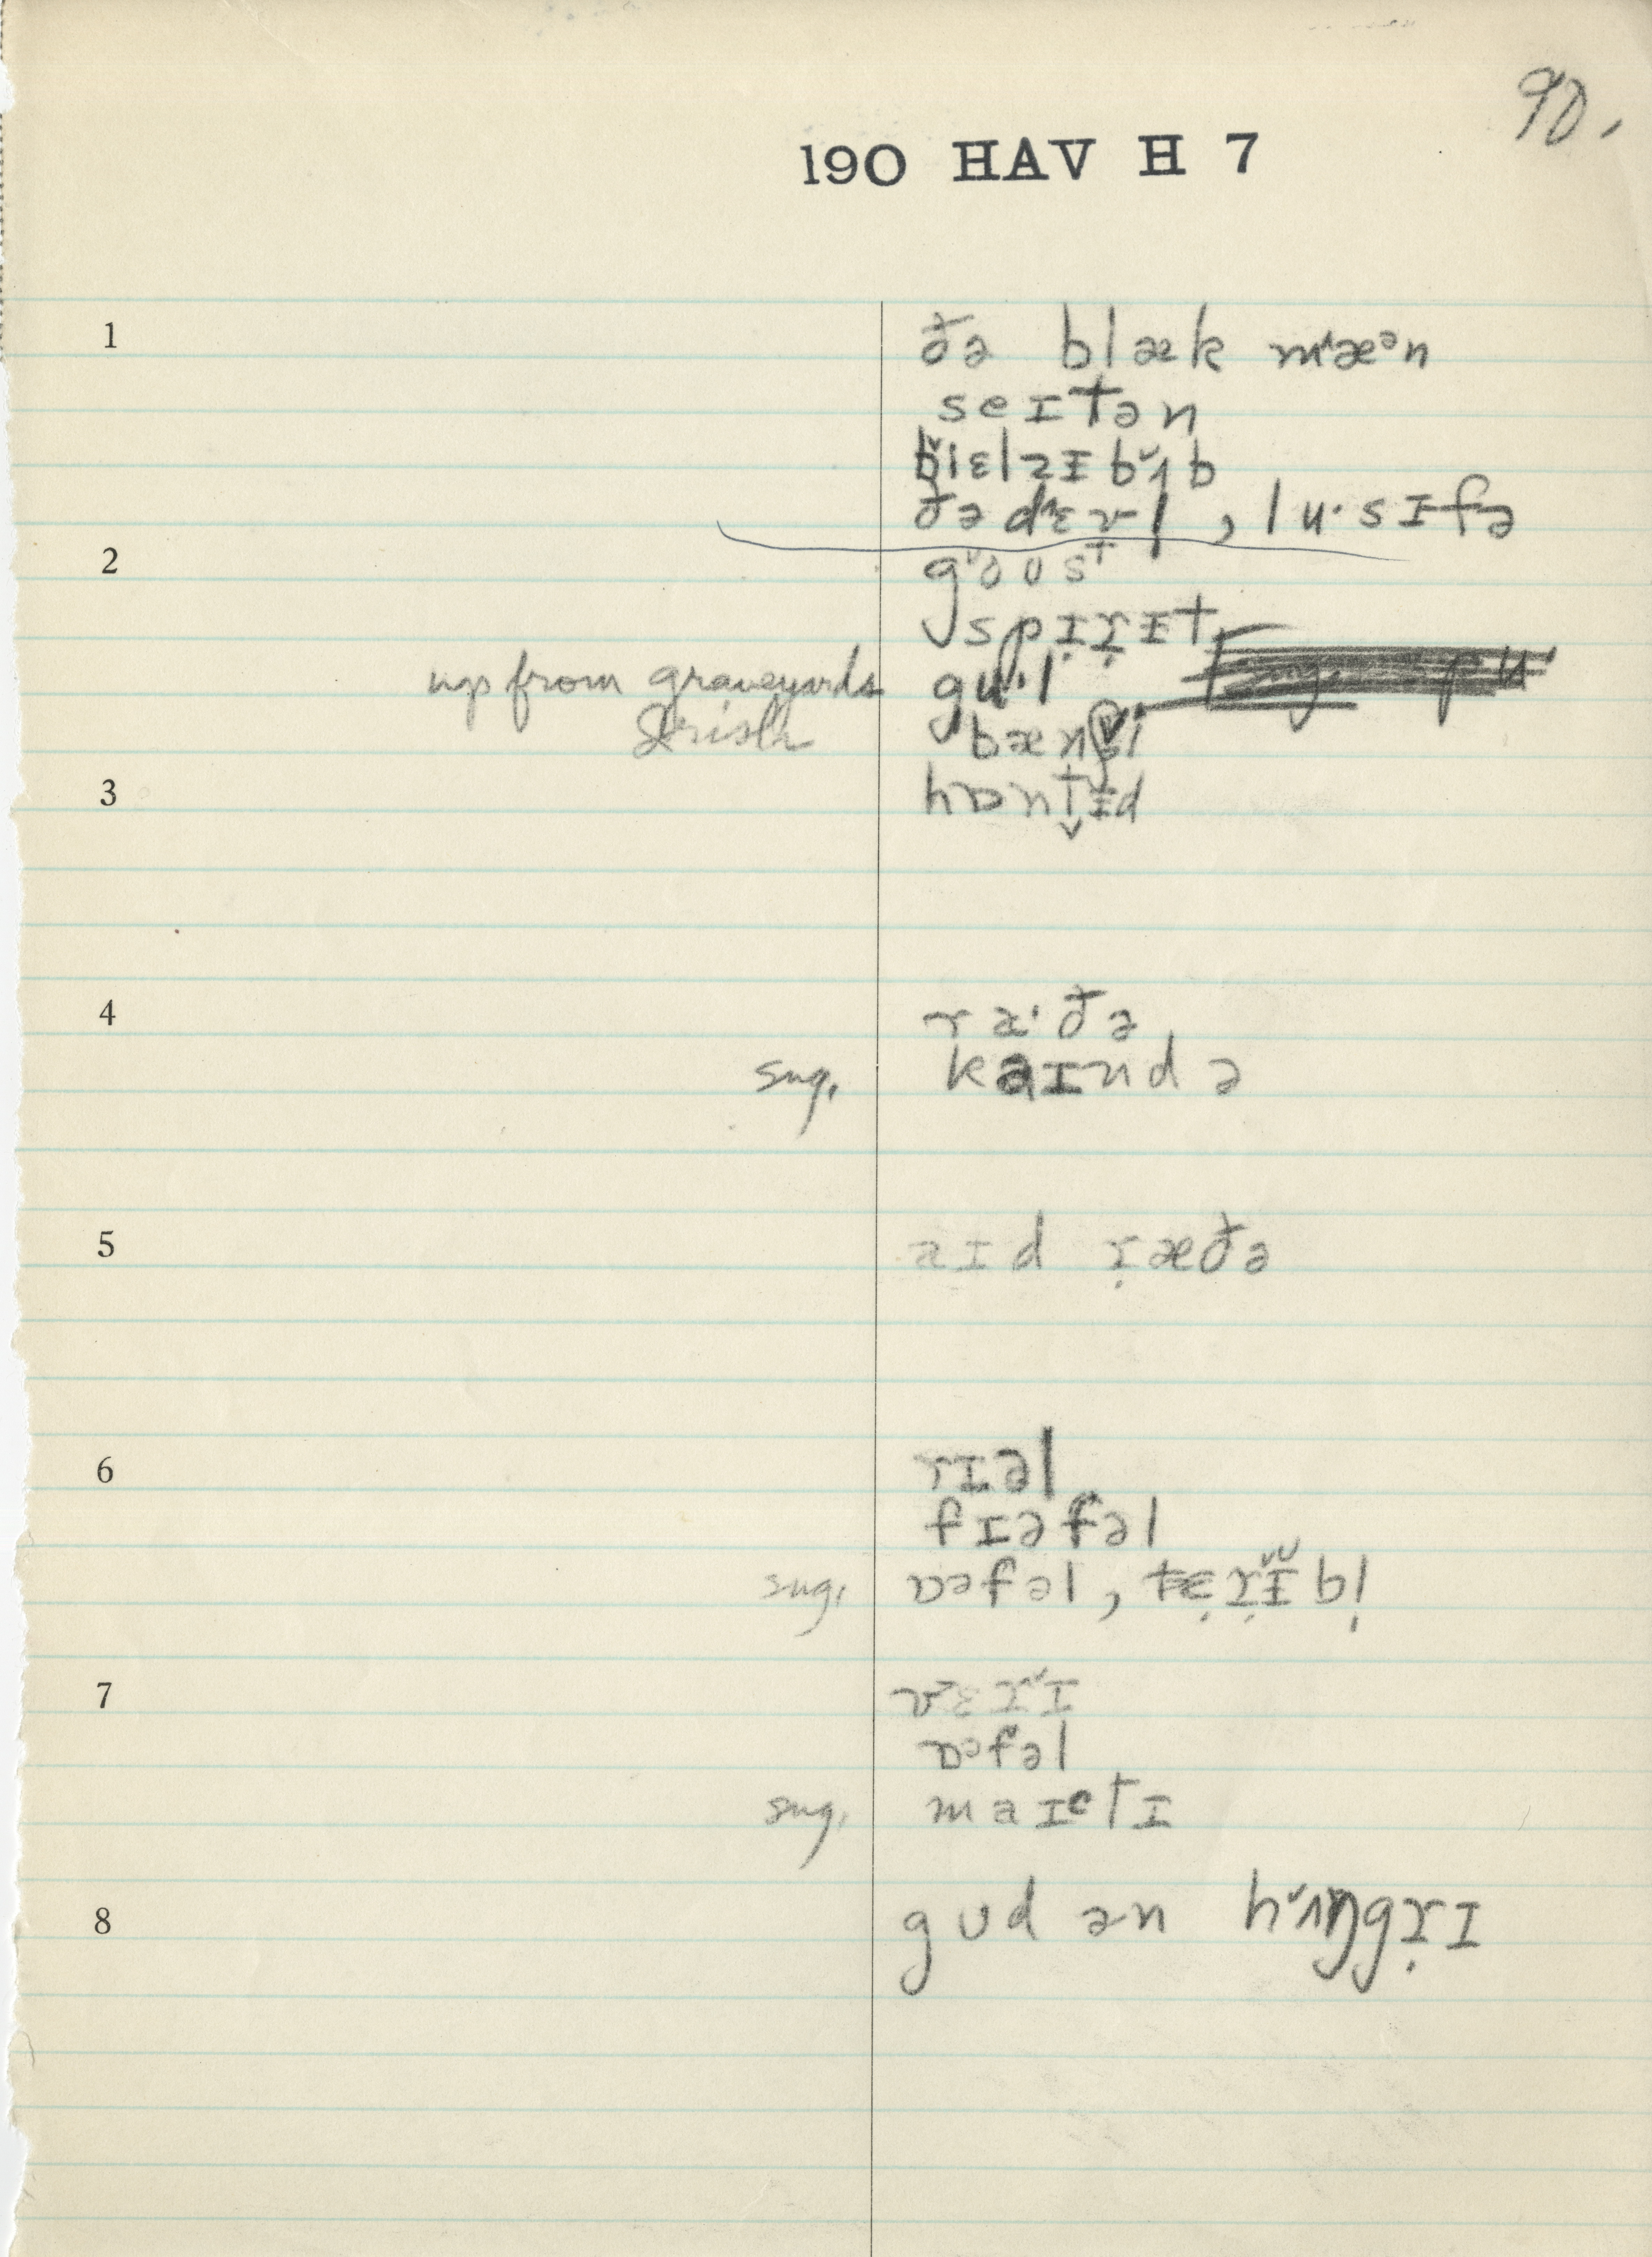 90.
190 HAV H 7
1 ðə blæk mæᵊn
seɪtən
bɪɛlzɪbʌb
ðə dɛvl̩, lu·sɪfə
2 goʊst
spɪr̩ɪt
up from graveyards gu·l
Irish bænʃi
3 hɒntɪd
4 ra·ðə
sug. kaɪndə
5 aɪd r̩æðə
6 rɪəl
fɪəfəl
sug. ɒᵊfəl, tɛr̩ɪbl̩
7 vɛrɪ
ɒᵊfəl
sug. maɪtɪ
8 gʊd ən hʌŋgr̩ɪ